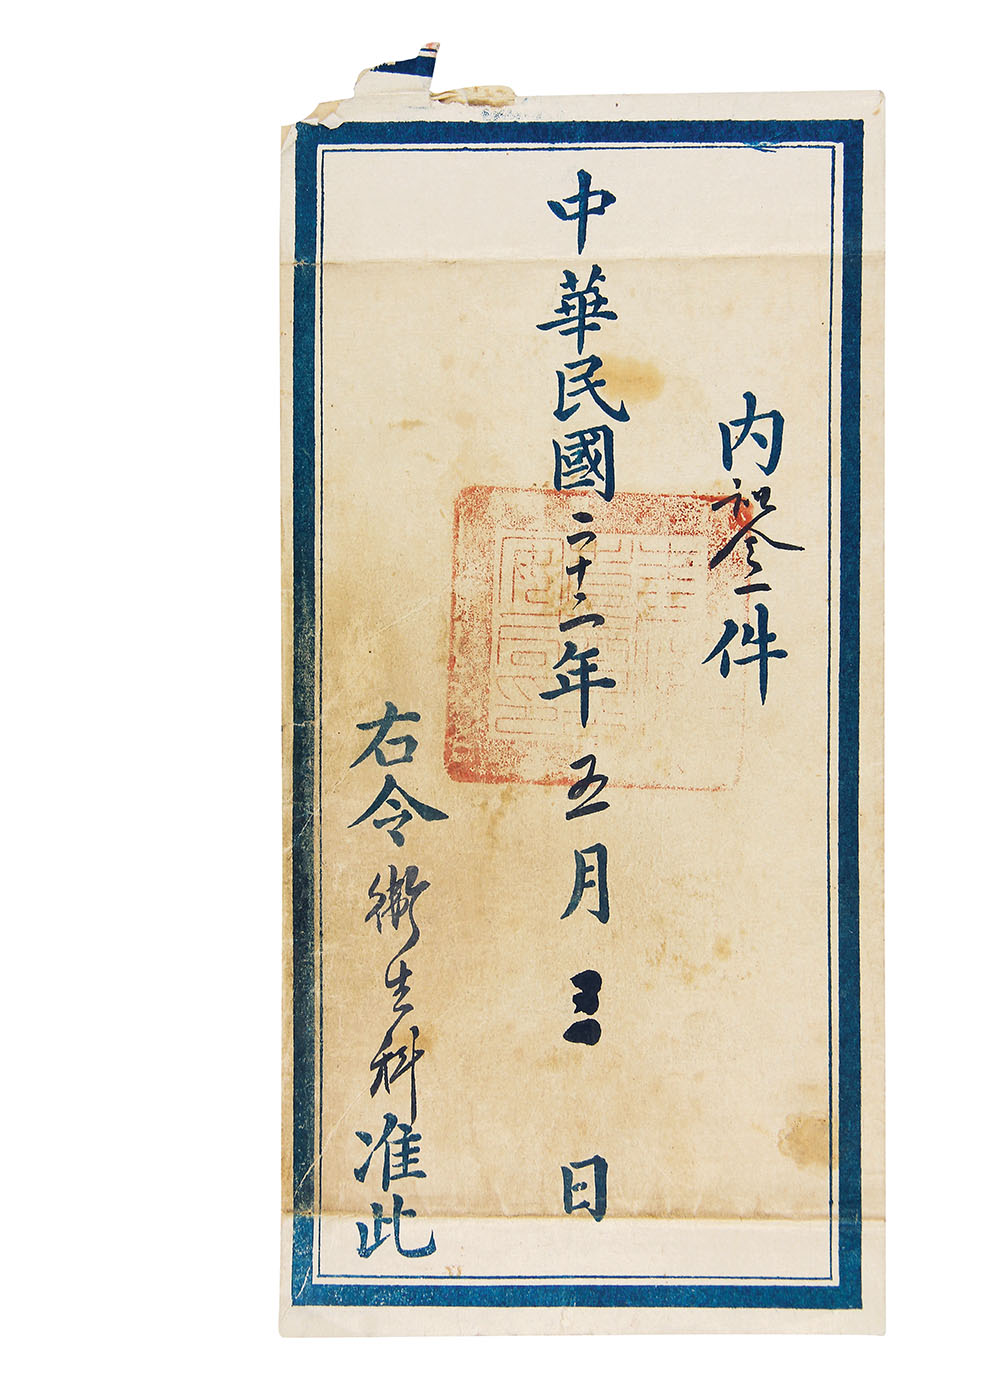 内訓令一件
中華民國二十二年五月三日
右令衛生科准此